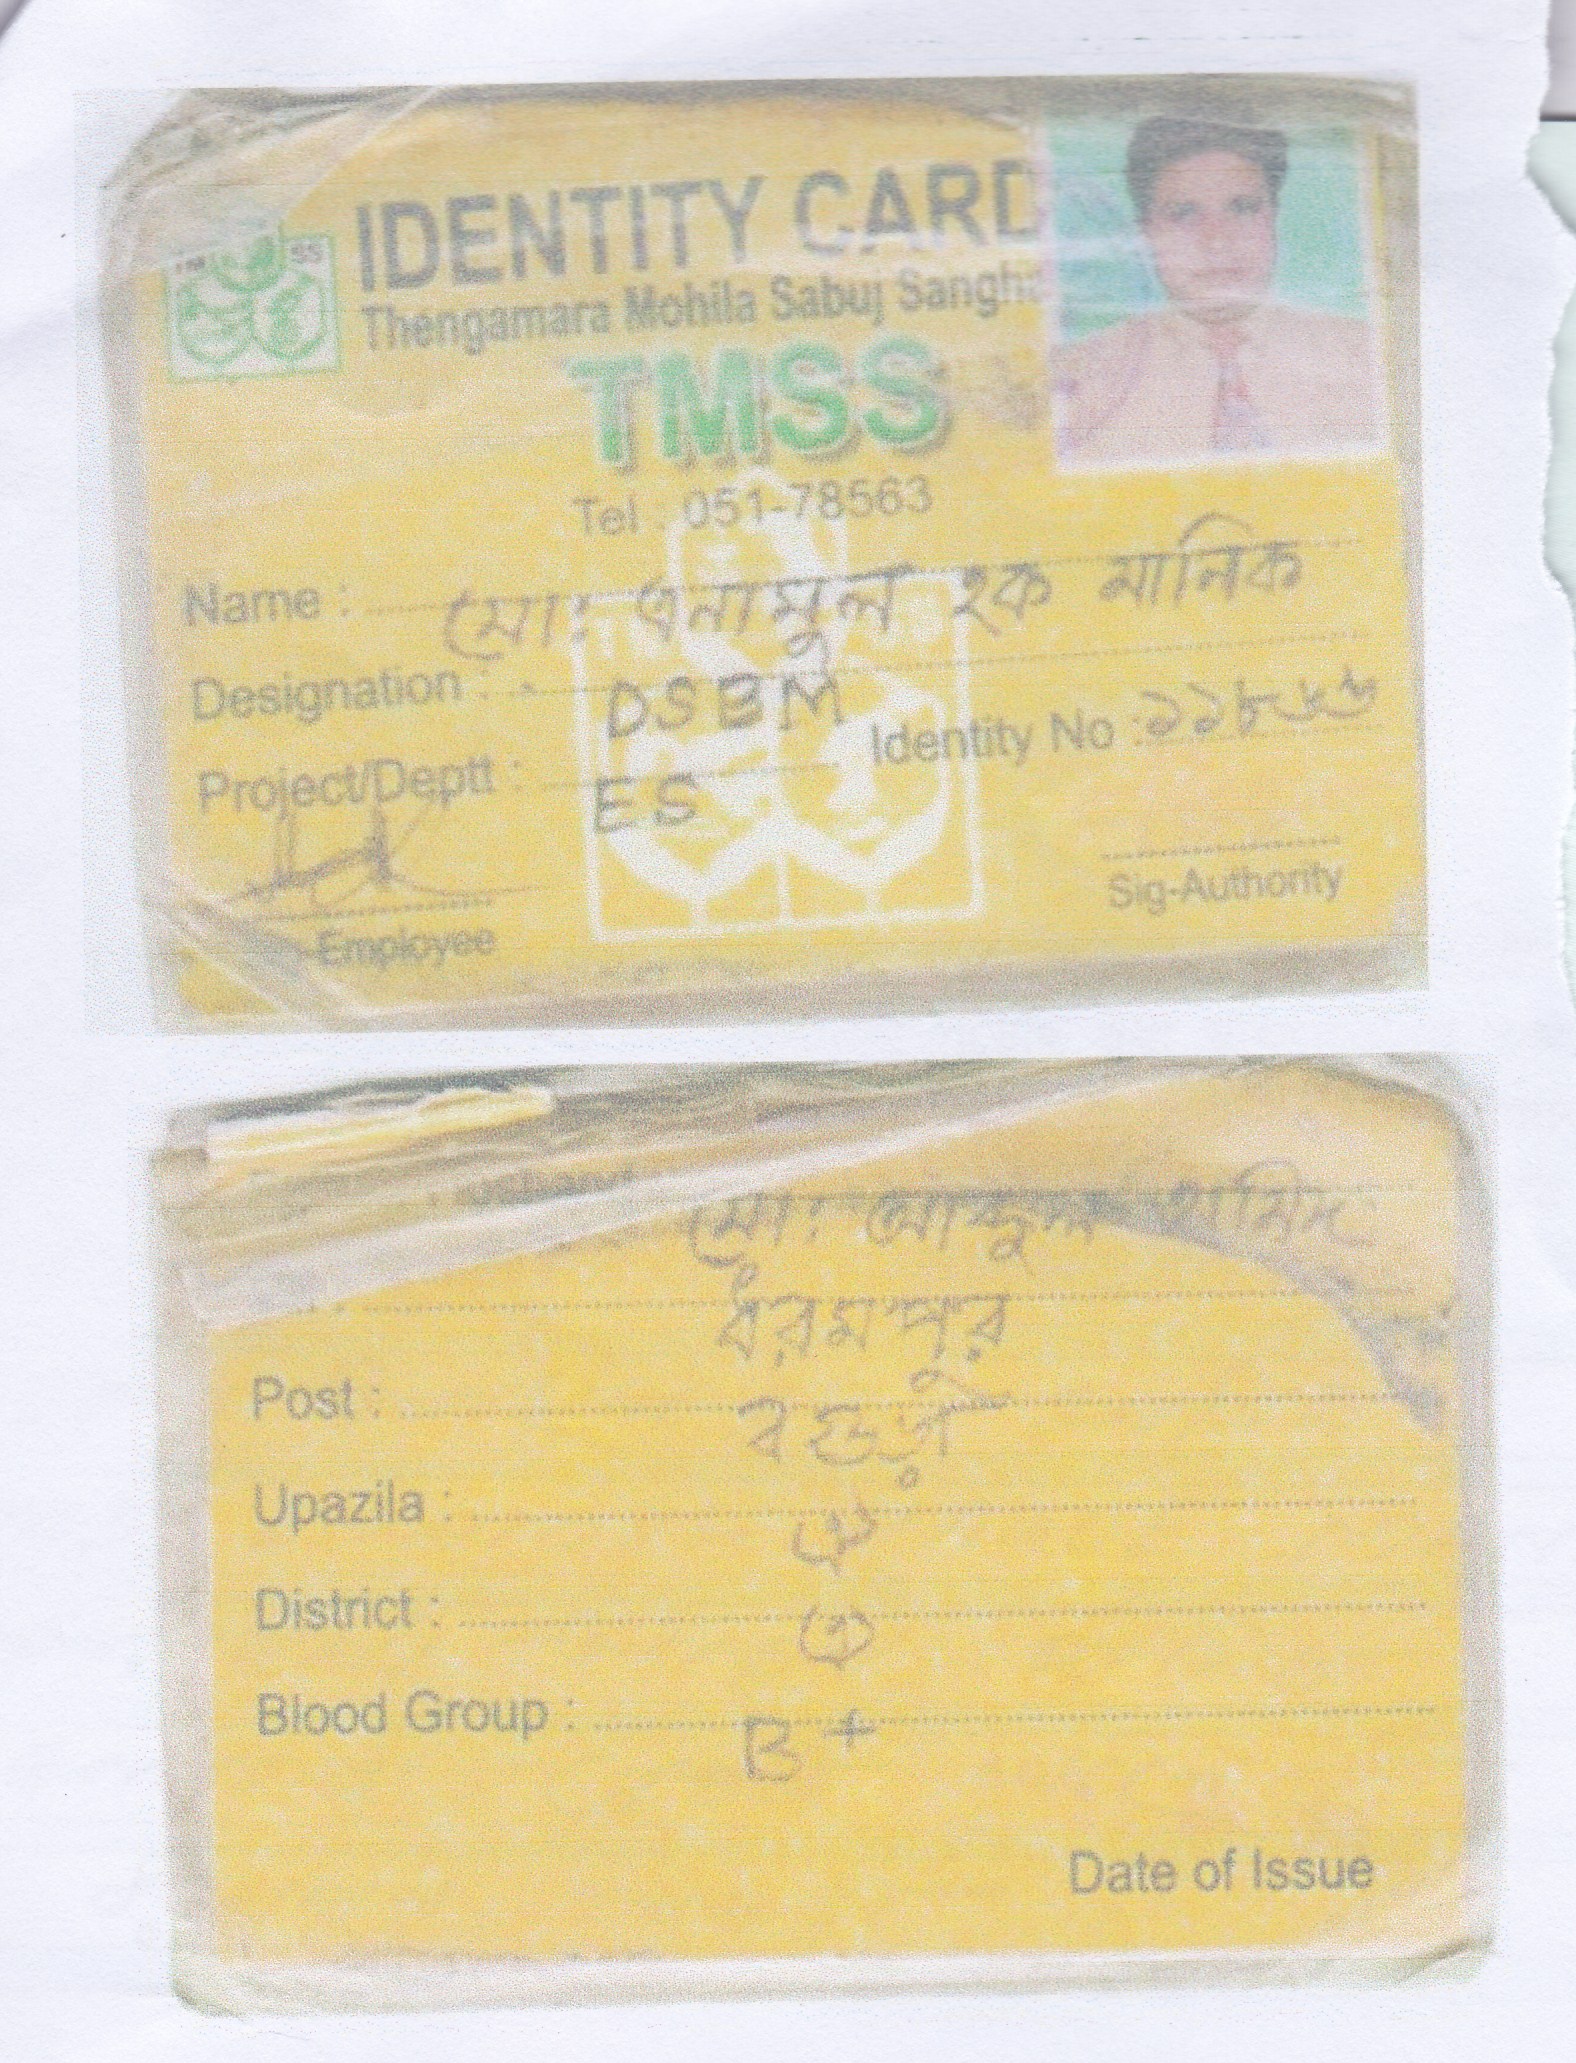 IDENTITY CARD
Thengamara Mohila Sabuj Sangha
TMSS
Tel : 051-78563
Name : মো: এনামুল হক মানিক
Designation : DSBM
Identity No :
Project/Deptt : ES
Employee
Sig-Authority
মো: আব্দুল হামিদ
ধরমপুর
Post : বগুড়া
Upazila : ঐ
District : ঐ
Blood Group : B+
Date of Issue